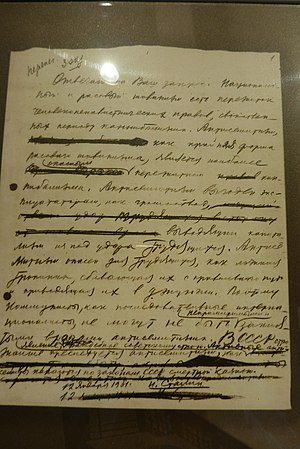 1
Отвечаю на Ваш запрос. Национальн
ный и расовый шовинизм есть пережиток
человеконенавистнических нравов, свойствен-
ных периоду каннибализма. Антисемитизм,
как крайняя форма
расового шовинизма, является наиболее
опасным
пережитком кан-
нибализма. Антисемитизм выгоден экс-
плуататорам, как громоотвод,
выводящий капита-
лизм из-под удара трудящихся. Антисе-
митизм опасен для трудящихся, как ложная
тропинка, сбивающая их с правильного пути
и приводящая их в джунгли. Поэтому
коммунисты, как последовательные интерна-
ционалисты, не могут не быть
непримиримыми и
закля-
тыми врагами антисемитизма. В СССР стро-
преследуется антисемитизм, как
по законам СССР смертной казнью.
12 января 1931. И. Сталин